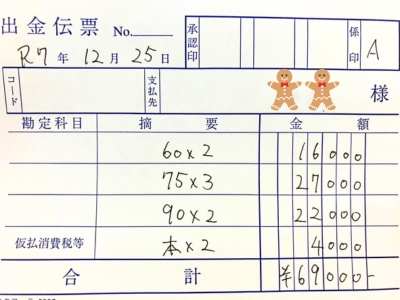 出金伝票 No.
承認印 係印 A
R7年 12月 25日
コード 支払先 様
勘定科目 摘要 金額
60×2 16000
75×3 27000
90×2 22000
仮払消費税等 本×2 4000
合計 ¥69000-